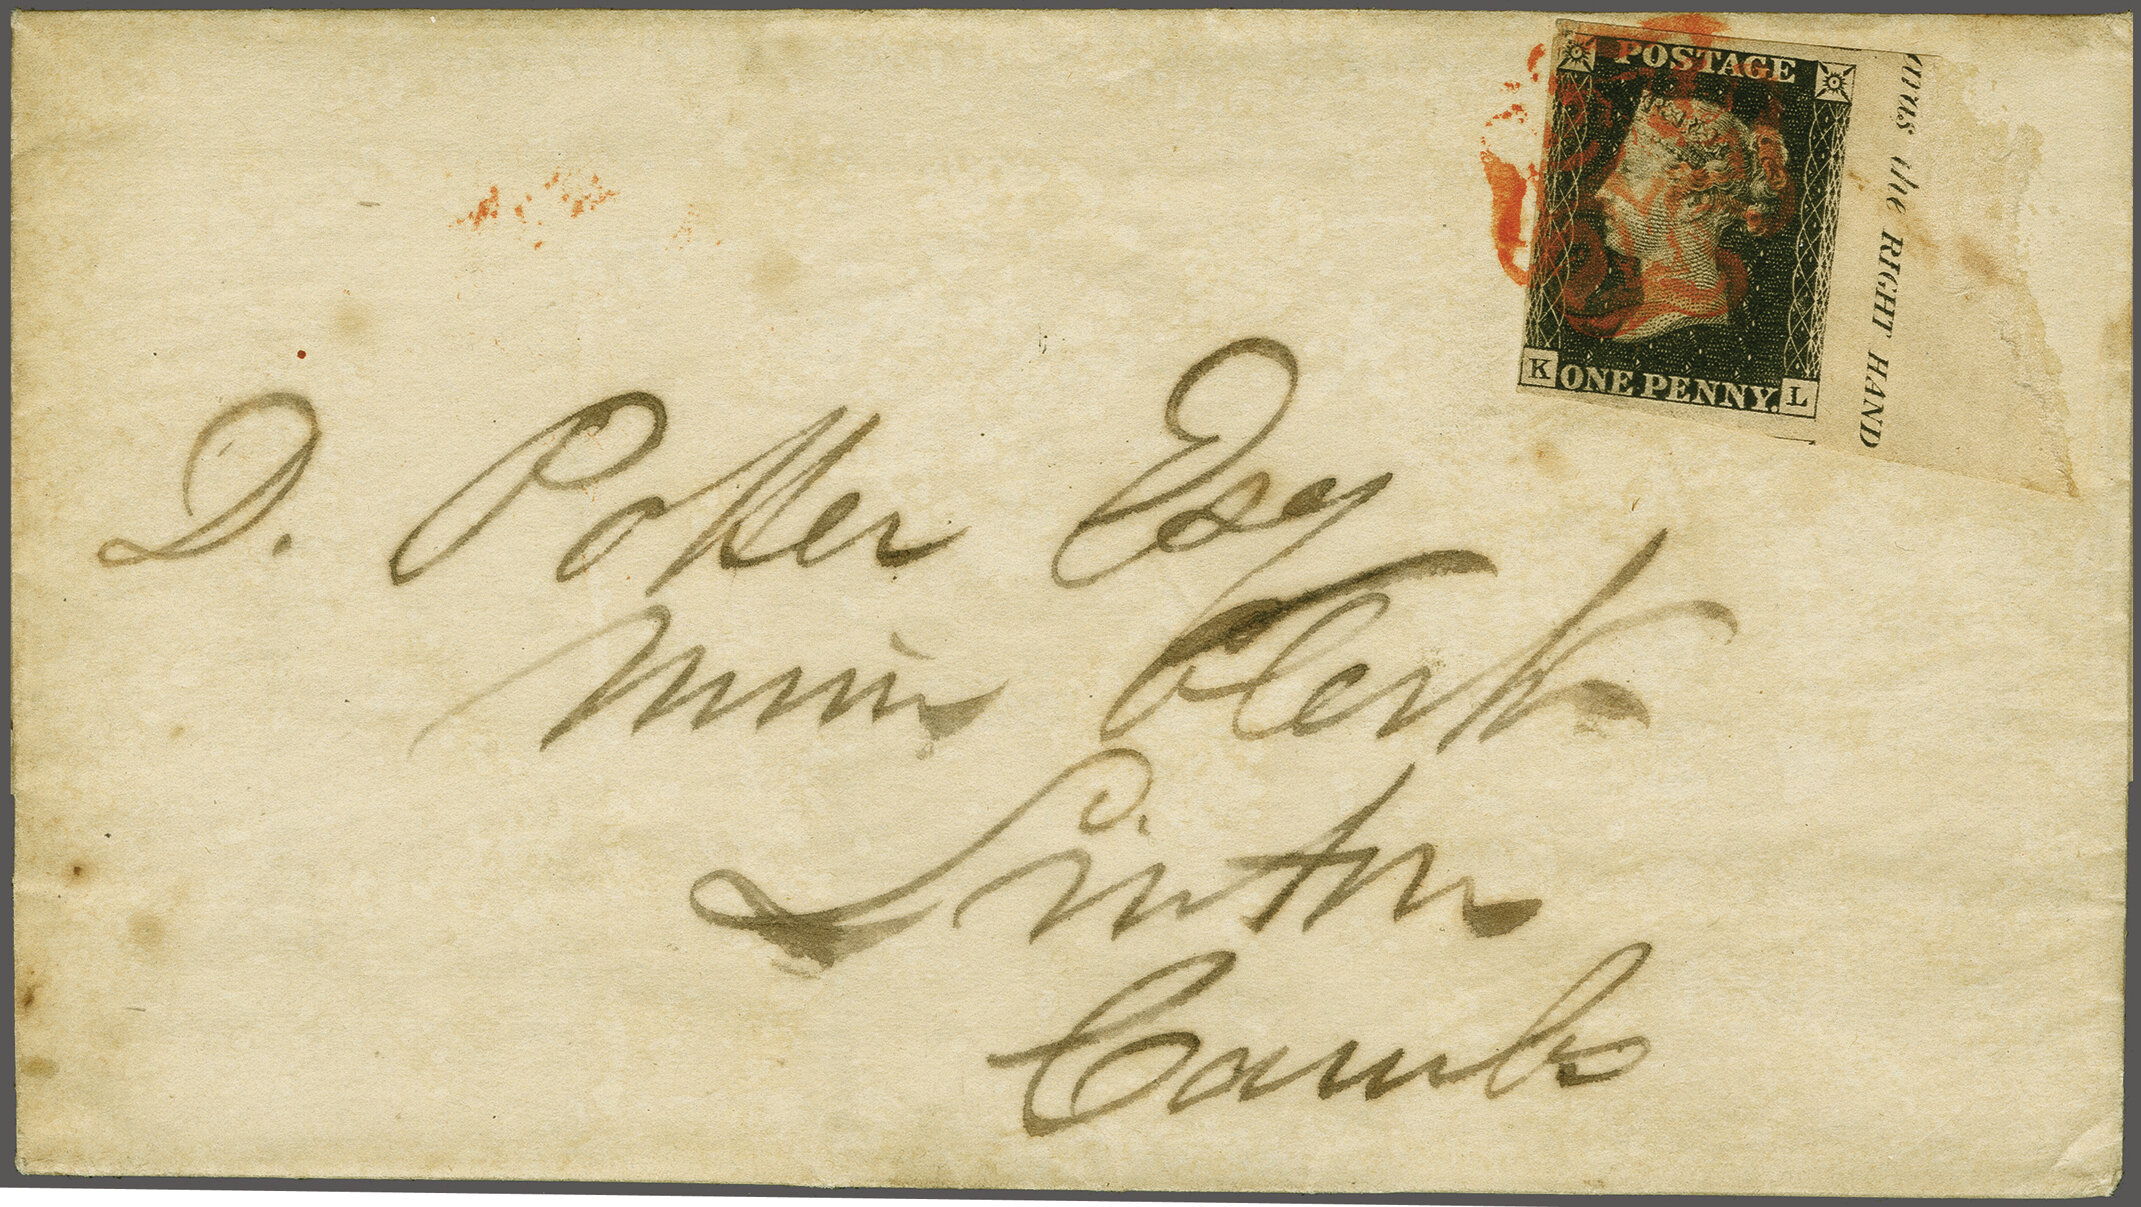 POSTAGE
K ONE PENNY. L
the RIGHT HAND
D. Potter Esq
Clerk
Linton
Cambs